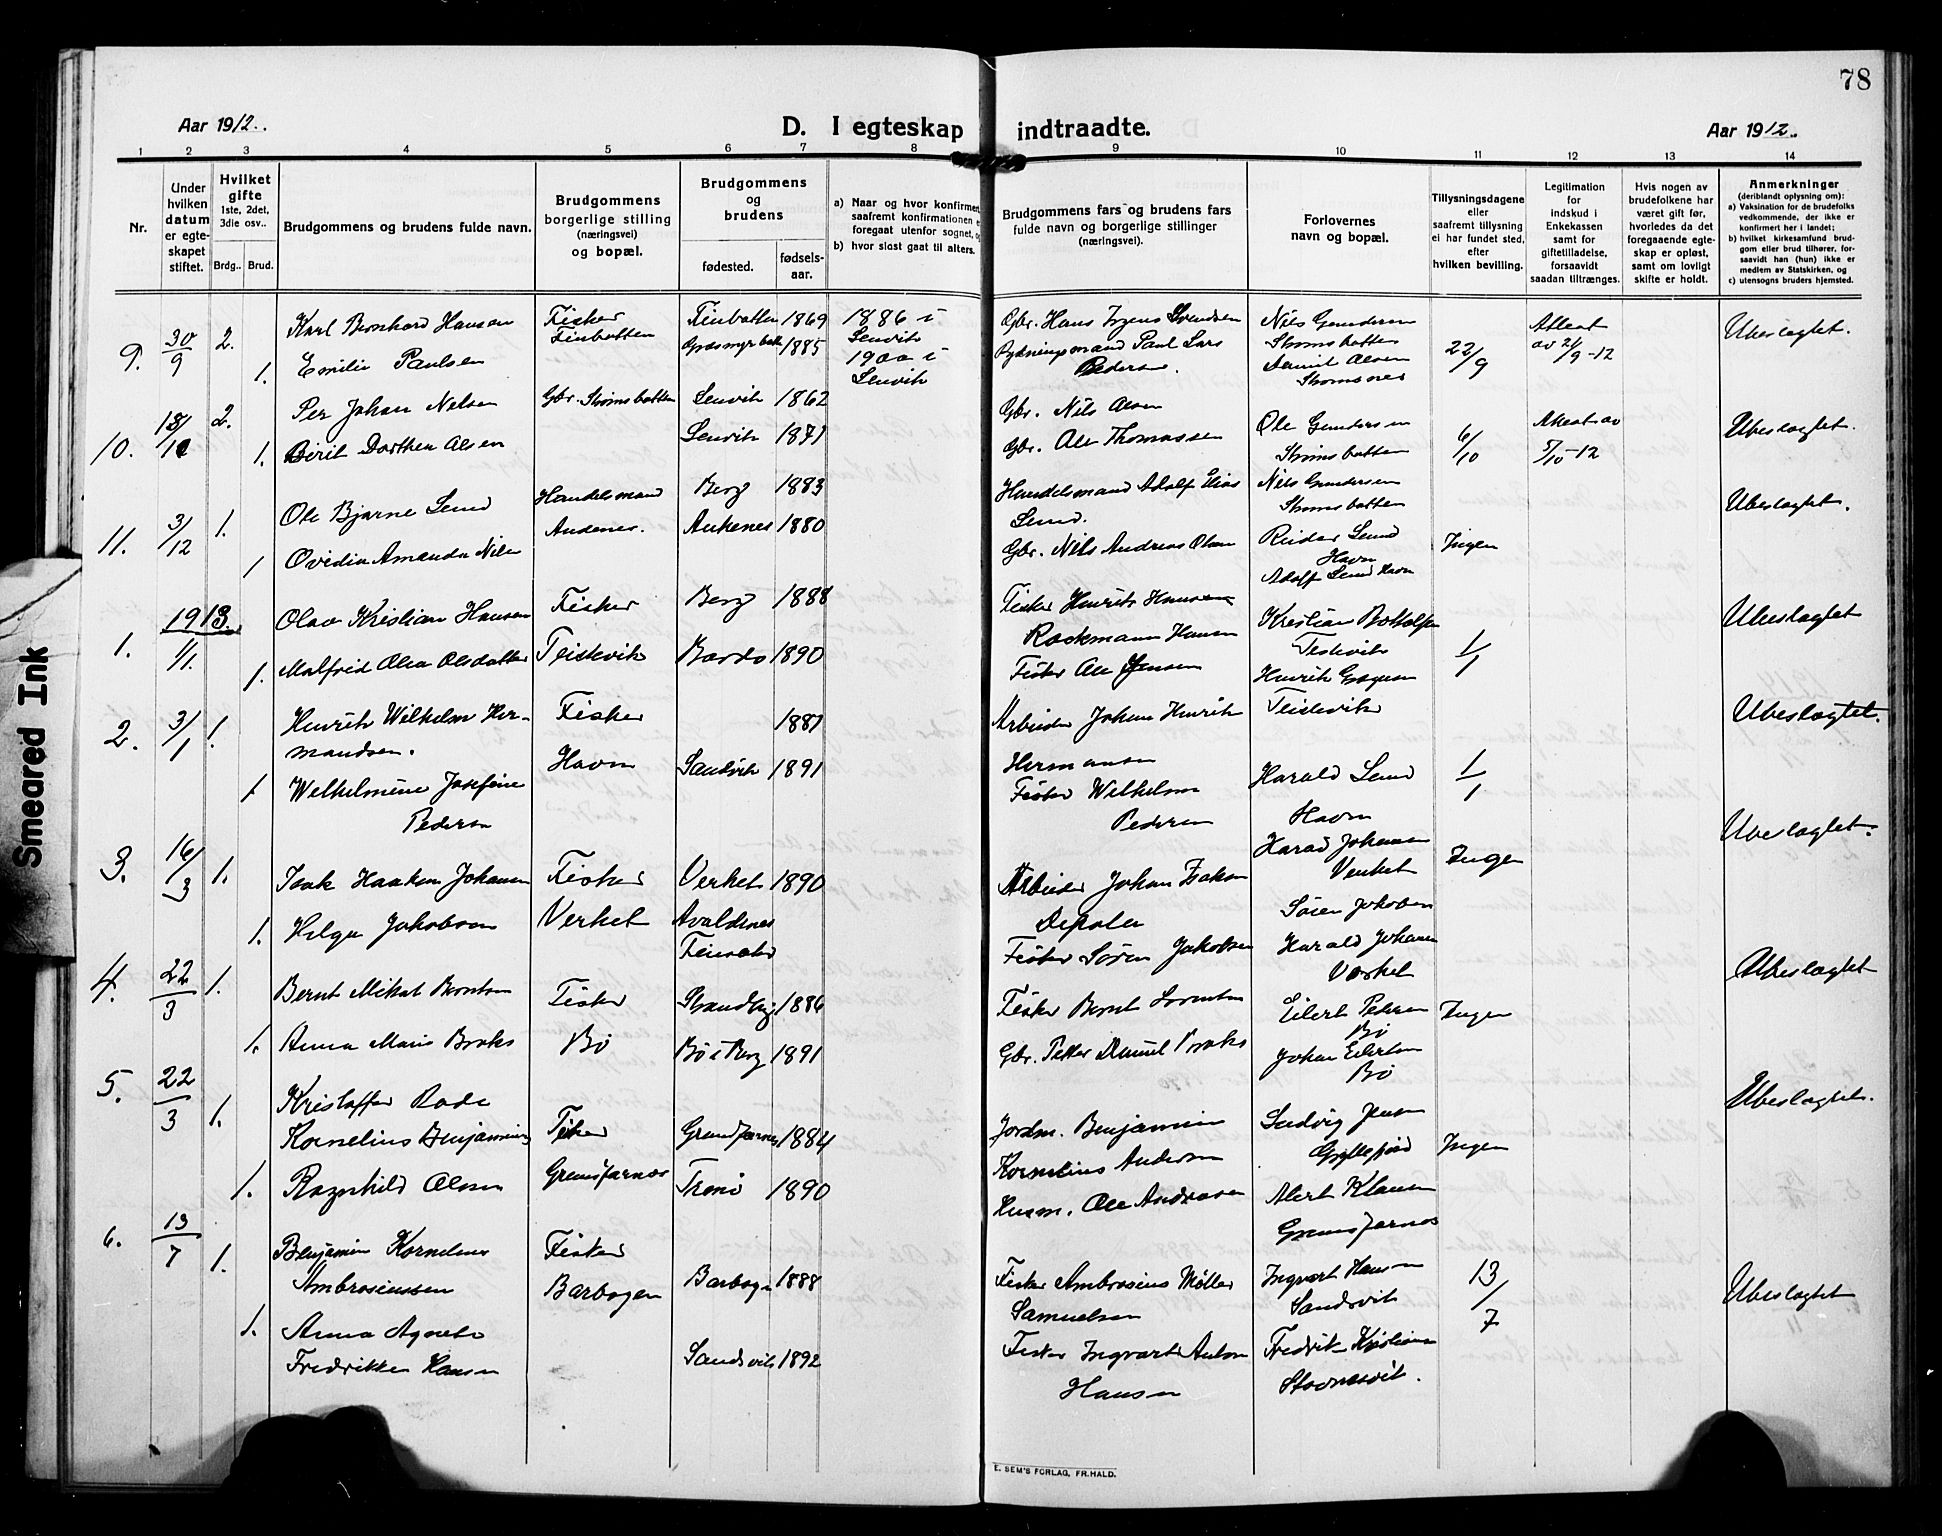 78
Aar 1912.
D. I egteskap indtraadte.
Aar 1912.
1 2 3 4 5 6 7 8 9 10 11 12 13 14
Nr.
Under hvilken datum er egteskapet stiftet.
Hvilket gifte 1ste, 2det, 3die osv..
Brdg.. Brud.
Brudgommens og brudens fulde navn.
Brudgommens borgerlige stilling (næringsvei) og bopæl.
Brudgommens og brudens
fødested.
fødselsaar.
a) Naar og hvor konfirmert,
saafremt konfirmationen
foregaat utenfor sognet,
b) hvor sidst gaat til alters.
Brudgommens fars og brudens fars
fulde navn og borgerlige stillinger
(næringsvei).
Forlovernes
navn og bopæl.
Tillysningsdagene
eller
saafremt tillysning
ei har fundet sted,
efter
hvilken bevilling.
Legitimation
for
indskud i
Enkekassen
samt for
giftetilladelse,
forsaavidt
saadan tiltrænges.
Hvis nogen av
brudefolkene har
været gift før,
hvorledes da det
foregaaende egteskap er opløst,
samt om lovligt
skifte er holdt.
Anmerkninger
(deriblandt oplysning om):
a) Vaksination for de brudefolks
vedkommende, der ikke er
konfirmert her i landet;
b) hvilket kirkesamfund brudgom eller brud tilhører, forsaavidt han (hun) ikke er
medlem av Statskirken, og
c) utensogns bruders hjemsted.
9. 30/9 2. Karl Bernhard Hansen Fisker Finbotten Finbotten 1869 1886 i Lenvik
1. Emilie Paulsen 1885 1900 i Lenvik
Gbr. Hans
Rydningsmand Paul Lars Pedersen.
Nils Gundersen Strømsbotten
Daniel Olsen Strømsnes
22/9
Attest av 21/9-12
Ubeslægtet.
10. 2. Per Johan Nilsen Gbr. Strømsbotten Lenvik 1862
1. Berit Dorthea Olsen Lenvik 1871
Gbr. Nils Olsen
Gbr. Ole Thomassen
Ole Gundersen Strømsbotten
6/10
Attest av 5/10-12
Ubeslægtet.
11. 3/12 1. Ole Bjarne Lund Handelsmand Andenes. Berg 1883
1 Ovidia Amanda Nils Ankenes 1880
Handelsmand Adolf Elias Lund.
Gbr. Nils Andreas Olsen
Nils Gundersen Strømsbotten
Reidar Lund Havn
Adolf Lund Havn
Ingen
Ubeslægtet.
1913.
1. 1/1. Olav Kristian Hansen Fisker Teistevik Berg 1888
1. Malfrid Olea Olsdatter Bardo 1890
Fisker Henrik Hansen
Rackmann Hansen
Fisker Ole Jensen
Kristian Bottolfsen Teistevik
Henrik
Teistevik
1/1
Ubeslægtet
2. 3/1 1. Henrik Wilhelm Hermandsen. Fisker Havn 1887
1 Wilhelmine Josefine Pedersen Sandvik 1891
Arbeider Johan Henrik Hermansen
Fisker Wilhelm Pedersen
Harald Lund Havn
1/1
Ubeslægtet.
3. 16/3 1. Isak Haakon Johansen Fisker Verket Verket 1890
1. Helga Jakobsen Avaldsnes
Arbeider Johan Isaksen
Fisker Søren Jakobsen
Harald Johansen Verket
Søren Jakobsen
Harald Johansen Verket
Ingen
Ubeslægtet.
4. 22/3 1. Bernt Mikal Berntsen Fisker Bø 1886
1. Anna Marie Broks Bø i Berg 1891
Fisker Bernt Lorentsen
Gbr. Petter Daniel Broks
Eilert Petersen Bø
Johan Eilertsen Bø
Ingen
Ubeslægtet
5. 22/3 1. Kristoffer Rode Kornelius Benjaminsen Fisker Grundfarnes Grundfarnes 1884
1. Ragnhild Olsen Tranø 1890
Jordm. Benjamin Kornelius Andersen
Husm. Ole Andreasen
Ludvig Jensen Gryllefjord
Alert Klausen Grundfarnes
Ingen
Ubeslægtet.
6. 13/7 1. Benjamin Kornelius Ambrosiussen Fisker Barbogen Barbogen 1888
1. Anna Agnete Fredrikke Hansen Sandsvik 1892
Fisker Ambrosius Møller Samuelsen
Fisker Ingvart Anton Hansen
Ingvart Hansen Sandsvik
Fredrik Kristiansen
13/7
Ubeslægtet
E. SEM'S FORLAG, FR.HALD.
Smeared Ink